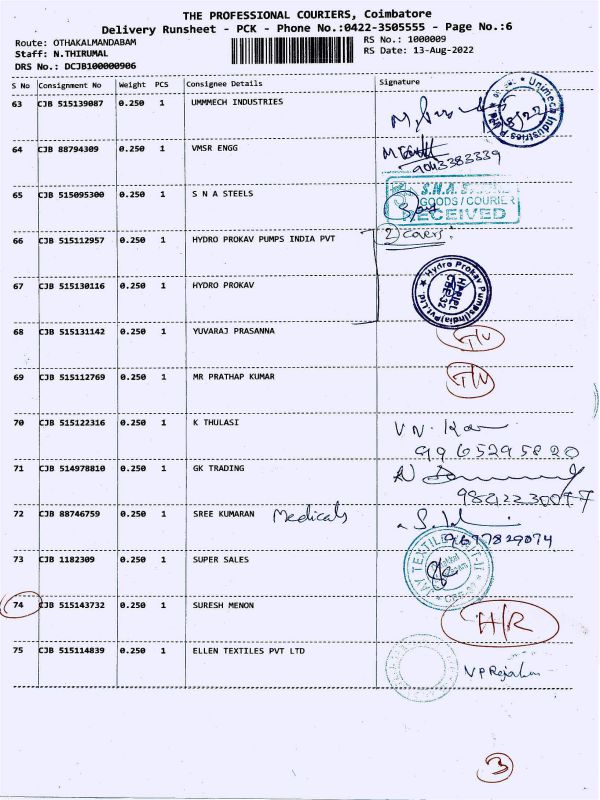 THE PROFESSIONAL COURIERS, Coimbatore
Delivery Runsheet - PCK - Phone No.:0422-3505555 - Page No.:6
Route: OTHAKALMANDABAM
RS No.: 1000009
Staff: N.THIRUMAL
RS Date: 13-Aug-2022
DRS No.: DCJB100000906
S No Consignment No Weight PCS Consignee Details Signature
63 CJB 515139087 0.250 1 UMMMECH INDUSTRIES
64 CJB 88794309 0.250 1 VMSR ENGG
9043383339
65 CJB 515095300 0.250 1 S N A STEELS
S.N.A.
GOODS/COURIER
RECEIVED
66 CJB 515112957 0.250 1 HYDRO PROKAV PUMPS INDIA PVT 2 Covers:
67 CJB 515130116 0.250 1 HYDRO PROKAV
Hydro Prokav Pumps (India) Pvt. Ltd.
68 CJB 515131142 0.250 1 YUVARAJ PRASANNA
69 CJB 515112769 0.250 1 MR PRATHAP KUMAR
70 CJB 515122316 0.250 1 K THULASI
9965295820
71 CJB 514978810 0.250 1 GK TRADING
72 CJB 88746759 0.250 1 SREE KUMARAN Medicals
9697829074
73 CJB 1182309 0.250 1 SUPER SALES
JAY TEXTILE UNIT-II
74 CJB 515143732 0.250 1 SURESH MENON H/R
75 CJB 515114839 0.250 1 ELLEN TEXTILES PVT LTD
3